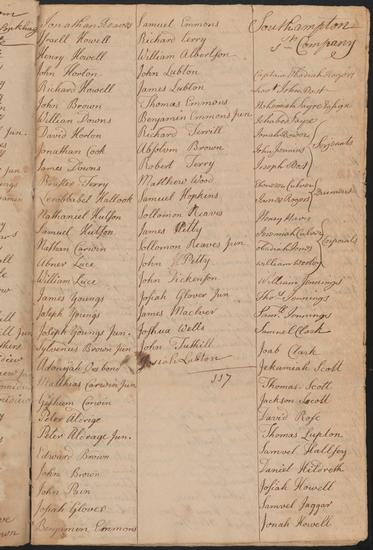 Jonathan Reaves
Isrell Howell
Henry Howell
John Horton
Richard Howell
John Brown
Willean Downs
David Horton
Jonathan Cook
James Downs
Brister Terry
Zerobbabel Hallock
Nathaniel Hutson
Samuel Hutson
Nathan Corwin
Abner Luce
William Luce
James Youngs
Joseph Youngs
Joseph Youngs Jun.
Sylvenius Brown Jun
Adonijah Desbond
Matthias Corwin Jun
Gershum Corwin
Peter Aldrige
Peter Aldrage Jun.
Edward Brown
John Brown
John Pain
Josiah Glover
Benjamin Emmons
Samuel Emmons
Richard Terry
William Albertson
John Lubton
James Lubton
Thomas Emmons
Benjamen Emmons Jun
Richard Terrill
Absolom Brown
Robert Terry
Matthew Wood
Samuel Hopkins
Sollomon Reaves
James Petty
Sollomon Reaves Jun
John Petty
John Dickenson
Josiah Glover Jun
James Maclver
Joshua Wells
John Tuthill
Josiah Lubton
117
Southampton
1st Company
Captain Thadiah Rogers
Lieut John Post
Nehemiah Sayre
Jonah Rower
John Jennins
Serjeants
Joseph Post
Thomson Culver
James Roges
Drummers
Henry Harris
Jeremiah Culver
Corporals
William Jennings
Thos Jennings
Saml Jennings
Samuel Clark
Joab Clark
Jekamiah Scott
Thomas Scott
Jackson Scott
David Rose
Thomas Lupton
Samuel Hallsey
Daniel Hildreth
Josiah Howell
Samuel Jaggar
Jonah Howell